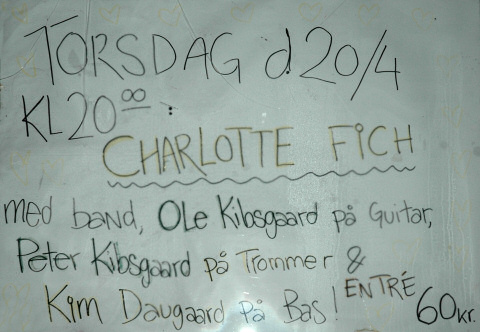 TORSDAG d.20/4
KL 20⁰⁰ :
CHARLOTTE FICH
med band, OLe Kibsgaard på Guitar,
Peter Kibsgaard på Trommer &
Kim Daugaard på Bas! ENTRÉ 60kr.